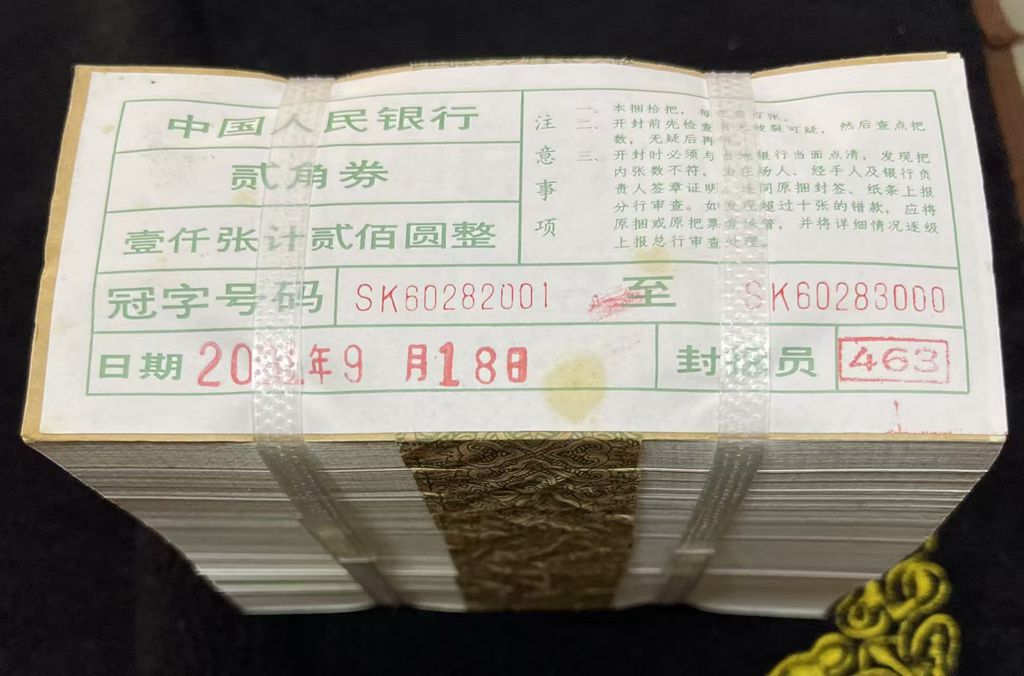 中国人民银行
贰角券
壹仟张计贰佰圆整
注意事项
一、本捆拾把，每
二、开封前先检查 破裂可疑，然后查点把
数，无疑后再
三、开封时必须与 银行当面点清，发现把
内张数不符，由在场人、经手人及银行负
责人签章证明，连同原捆封签、纸条上报
分行审查。如发现超过十张的错款，应将
原捆或原把票券保管，并将详细情况逐级
上报总行审查处理。
冠字号码 SK60282001 至 SK60283000
日期 20 年9月18日 封 员 463